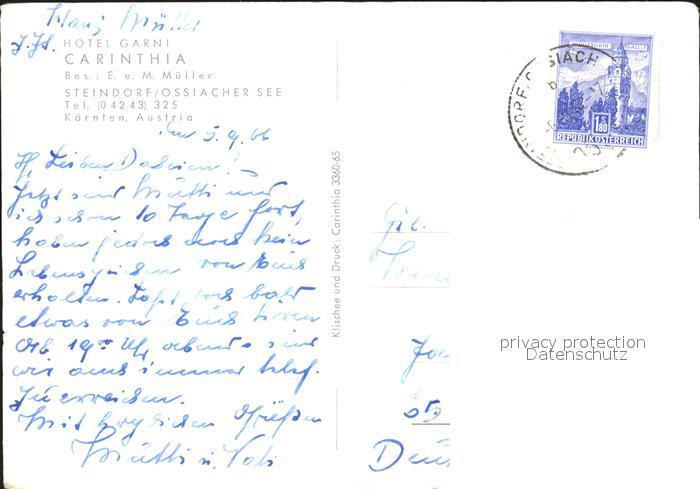 HOTEL GARNI
CARINTHIA
Bes.: E. u. M. Müller
STEINDORF/OSSIACHER SEE
Tel. (0 42 43) 325
Kärnten, Austria
5.9.66
Ihr Lieben Daheim!
Jetzt sind Mutti und
ich schon 10 Tage fort,
haben jedoch noch kein
Lebenszeichen von Euch
erhalten. Laßt doch bald
etwas von Euch hören
Ab 19⁰⁰ Uhr abends sind
wir immer telef.
zu erreichen.
Mit herzlichen Grüßen
Mutti u. Vati
Klischee und Druck: Carinthia 3360-65
1.80
REPUBLIK ÖSTERREICH
privacy protection
Datenschutz